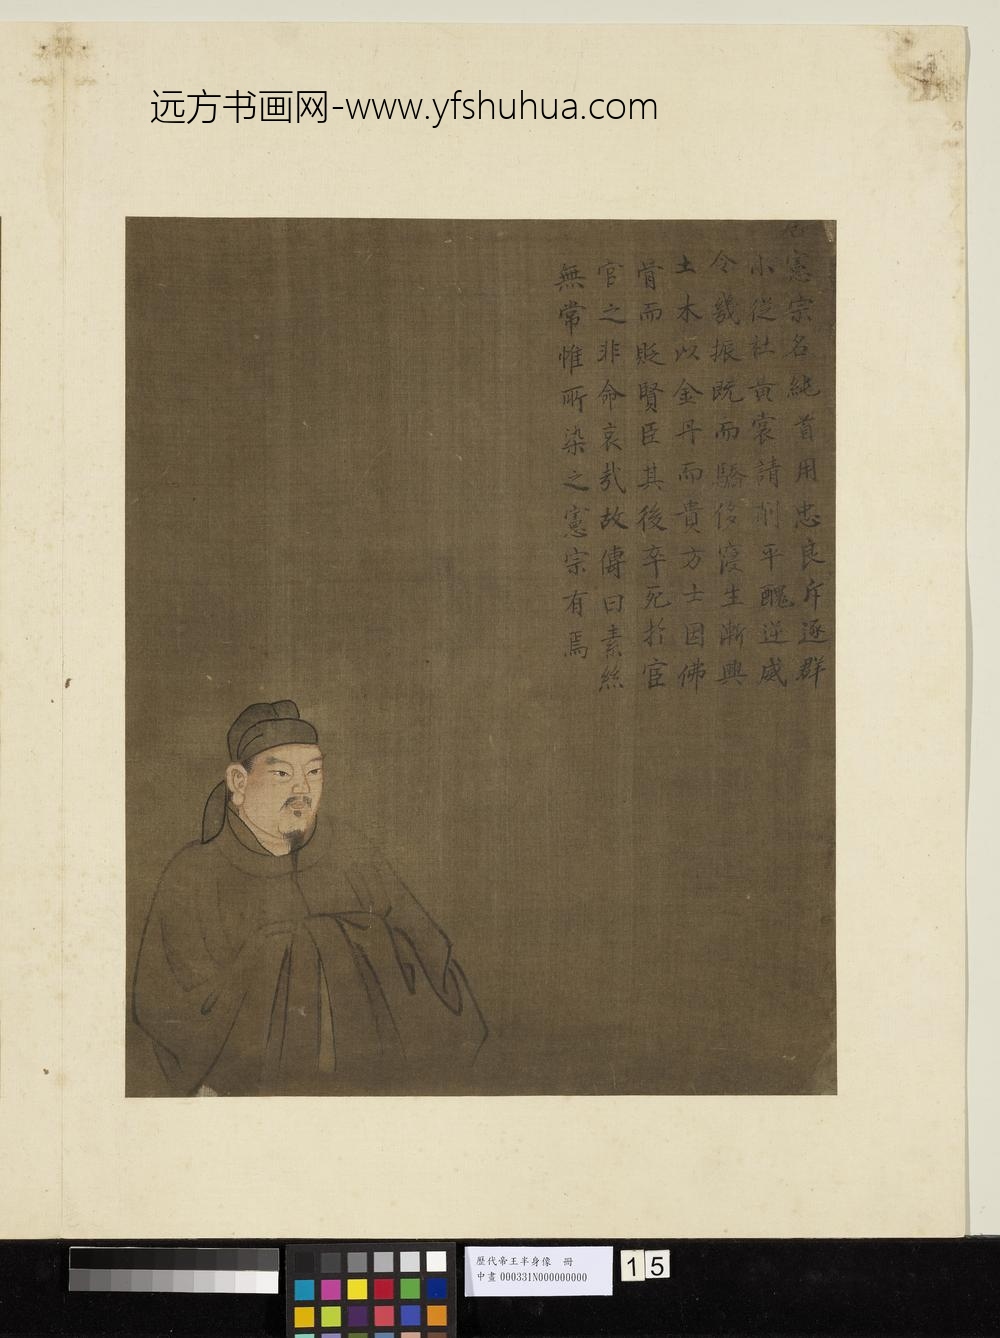 远方书画网-www.yfshuhua.com
憲宗名純首用忠良斥逐群
小從杜黃裳請削平醜逆威
令幾振既而驕侈寖生漸興
土木以金丹而貴方士因佛
骨而貶賢臣其後卒死於宦
官之非命哀哉故傳曰素絲
無常惟所染之憲宗有焉
歷代帝王半身像 冊
中畫 000331N000000000
15